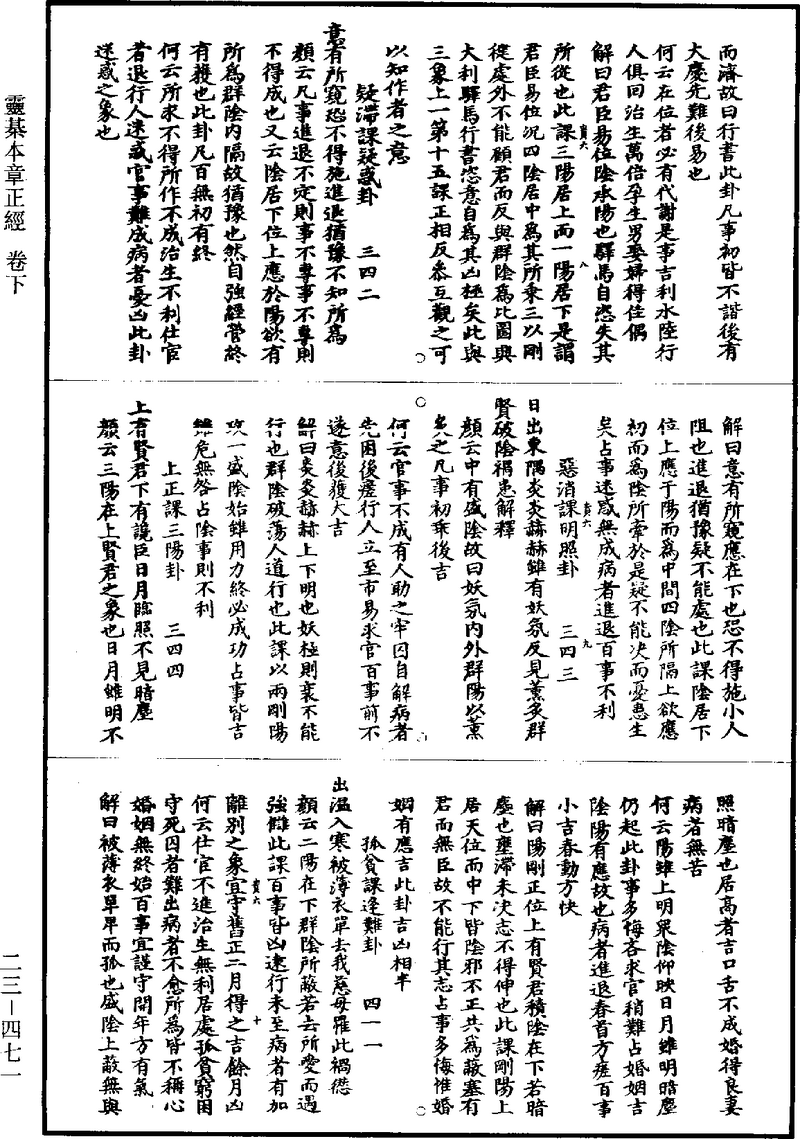 靈棊本章正經　卷下
二三－四七一
而濟故曰行書此卦凡事初皆不諧後有
大慶先難後易也
何云在位者必有代謝是事吉利水陸行
人俱回治生萬倍孕生男娶婦得佳偶
解曰君臣易位陰承陽也驛馬自恣失其
所從也此課三陽居上而一陽居下是謂
君臣易位況四陰居中為其所乘三以剛
從處外不能顧君而反與群陰為比圖與
大利驛馬行書恣意自為其凶極矣此與
三象上一第十五課正相反叅互觀之可
以知作者之意
疑滯課疑惑卦　三四二
意有所窺恐不得施進退猶豫不知所為
顏云凡事進退不定則事不專事不專則
不得成也又云陰居下位上應於陽欲有
所為群陰内隔故猶豫也然自強經營終
有獲也此卦凡百無初有終
何云所求不得所作不成治生不利仕宦
者退行人迷惑官事難成病者憂凶此卦
迷惑之象也
解曰意有所窺應在下也恐不得施小人
阻也進退猶豫疑不能處也此課陰居下
位上應于陽而為中間四陰所隔上欲應
初而為陰所牽於是疑不能決而憂患生
矣占事迷惑無成病者進退百事不利
惡消課明照卦　三四三
日出東隅炎炎赫赫雖有妖氛反見薰炙群
賢破陰禍患解釋
顏云中有盛陰故曰妖氛内外群陽以薰
炙之凡事初乖後吉
何云官事不成有人助之牢囚自解病者
先困後瘥行人立至市易求官百事前不
遂意後獲大吉
解曰炎炎赫赫上下明也妖極則衰不能
行也群陰破蕩人道行也此課以兩剛陽
攻一盛陰始雖用力終必成功占事皆吉
雖危無咎占陰事則不利
上正課三陽卦　三四四
上有賢君下有讒臣日月臨照不見暗塵
顏云三陽在上賢君之象也日月雖明不
照暗塵也居高者吉口舌不成婚得良妻
病者無苦
何云陽雖上明衆陰仰映日月雖明暗塵
仍起此卦事多悔吝求官稍難占婚姻吉
陰陽有應故也病者進退春首方瘥百事
小吉春動方快
解曰陽剛正位上有賢君積陰在下若暗
塵也壅滯未決志不得伸也此課剛陽上
居天位而中下皆陰邪不正共為蔽塞有
君而無臣故不能行其志占事多悔惟婚
姻有應吉此卦吉凶相半
孤貧課逢難卦　四一一
出溫入寒被薄衣單去我慈母罹此禍愆
顏云二陽在下群陰所蔽若去所愛而遇
強讎此課百事皆凶遠行未至病者有加
離別之象宜守舊正二月得之吉餘月凶
何云仕宦不進治生無利居處孤貧窮困
守死囚者難出病者不愈所為皆不稱心
婚姻無終始百事宜謹守開年方有氣
解曰被薄衣單單而孤也盛陰上蔽無與